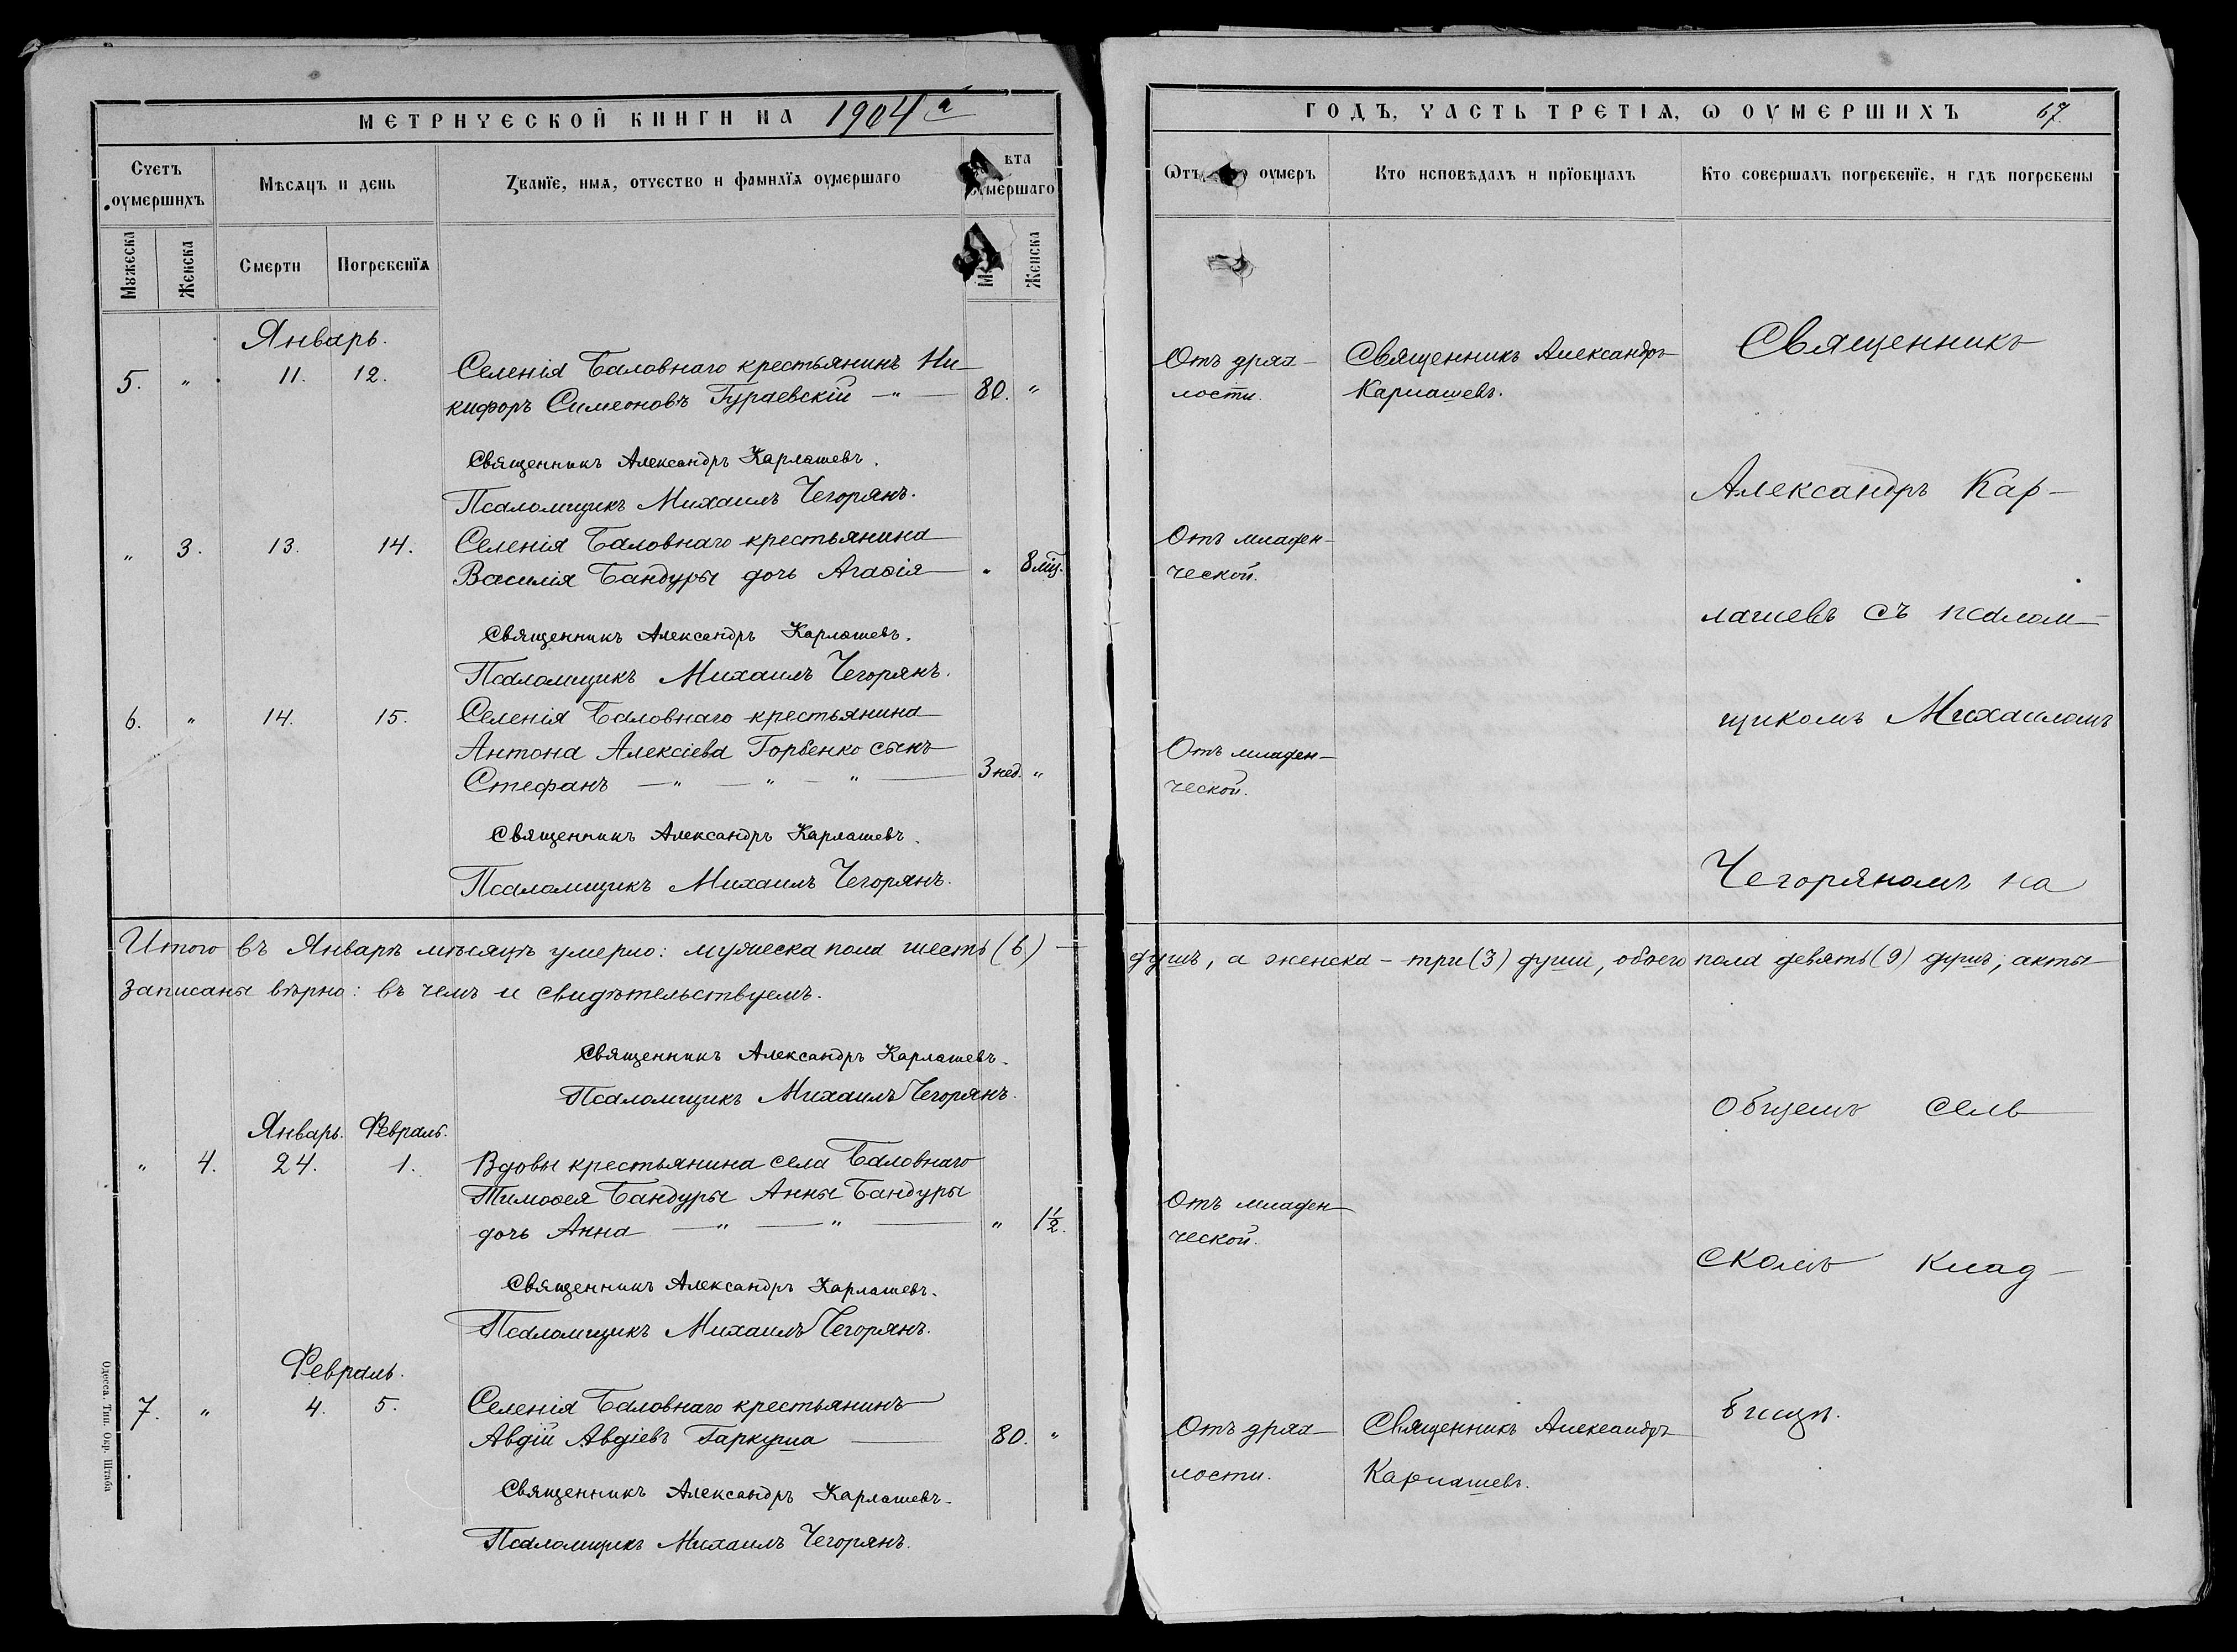 МЕТРИЧЕСКОЙ КНИГИ НА 1904й
Счетъ оумершихъ
Мѣсяцъ и день
Званїе, имя, отчество и фамилїя оумершаго
ѣта оумершаго
Мужеска
Женска
Смерти
Погребенїя
Женска
Январь.
5. " 11. 12. Селенія Баловнаго крестьянинъ Ни-
кифоръ Симеоновъ Гураевскій — " — 80. "
Священникъ Александръ Карлашевъ.
Псаломщикъ Михаилъ Чегорянъ.
" 3. 13. 14. Селенія Баловнаго крестьянина
Василія Бандуры дочь Агаѳія — " 8 мѣс.
Священникъ Александръ Карлашевъ.
Псаломщикъ Михаилъ Чегорянъ.
6. " 14. 15. Селенія Баловнаго крестьянина
Антона Алексіева Горбенко сынъ
Стефанъ — " — " — " — 3 нед. "
Священникъ Александръ Карлашевъ.
Псаломщикъ Михаилъ Чегорянъ.
Итого въ Январѣ мѣсяцѣ умерло: мужеска пола шесть (6) —
записаны вѣрно: въ чемъ и свидѣтельствуемъ.
Священникъ Александръ Карлашевъ.
Псаломщикъ Михаилъ Чегорянъ.
Январь. Февраль.
" 4. 24. 1. Вдовы крестьянина села Баловнаго
Тимоѳея Бандуры Анны Бандуры
дочь Анна — " — " — " 1½.
Священникъ Александръ Карлашевъ.
Псаломщикъ Михаилъ Чегорянъ.
Февраль.
7. " 4. 5. Селенія Баловнаго крестьянинъ
Авдій Авдіевъ Гаркуша — 80. "
Священникъ Александръ Карлашевъ.
Псаломщикъ Михаилъ Чегорянъ.
Одесса, Тип. Окр. Штаба
ГОДЪ, ЧАСТЬ ТРЕТІЯ, Ѡ ОУМЕРШИХЪ 67.
Ѿтъ оумеръ
Кто исповѣдалъ и прїобщалъ
Кто совершалъ погребенїе, и гдѣ погребены
Отъ дрях-
лости.
Священникъ Александръ
Карлашевъ.
Священникъ
Александръ Кар-
Отъ младен-
ческой.
лашевъ съ псалом-
щикомъ Михаиломъ
Отъ младен-
ческой.
Чегоряномъ на
душъ, а женска - три (3) души, обоего пола девять (9) душъ; акты
общемъ сель-
Отъ младен-
ческой.
скомъ клад-
Отъ дрях-
лости.
Священникъ Александръ
Карлашевъ.
бищѣ.